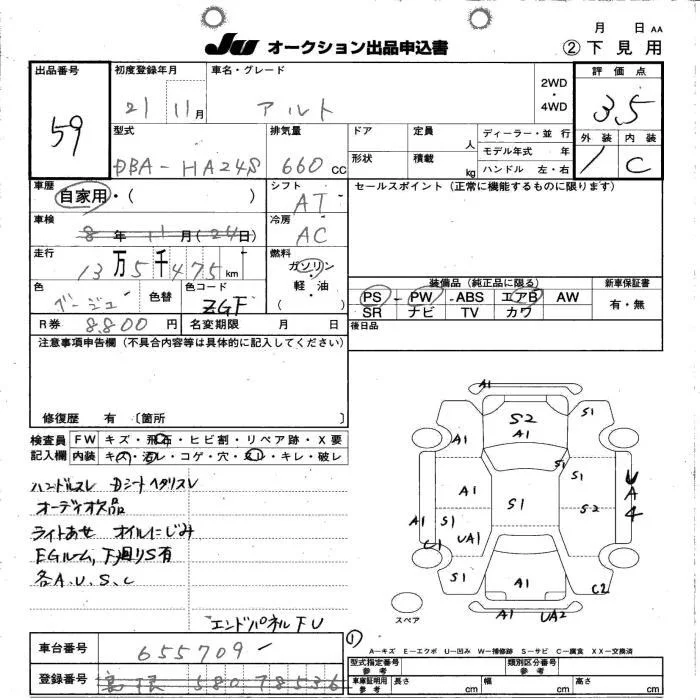 月 日 AA
JU オークション出品申込書
②下見用
出品番号
59
初度登録年月
21 11月
車名・グレード
アルト
2WD
・
4WD
評価点
3.5
外装 内装
1 C
型式
DBA-HA24S
排気量
660 cc
ドア
定員
人
ディーラー・並 行
モデル年式 年
ハンドル 左・右
形状
積載
kg
車歴
自家用・( )
シフト
AT
セールスポイント(正常に機能するものに限ります)
車検
8年11月(24日)
冷房
AC
走行
13万5千475km
燃料
ガソリン
・
軽油
( )
色
色替
色コード
ZGF
装備品(純正品に限る)
新車保証書
PS - PW - ABS エアB AW
SR ナビ TV カワ
有・無
R券 8.800円
名変期限 月 日
後日品
注意事項申告欄(不具合内容等は具体的に記入してください)
修復歴 有 〔箇所 〕
検査員記入欄
FW キズ・飛石・ヒビ割・リペア跡・X要
内装 キズ・汚レ・コゲ・穴・スレ・キレ・破レ
ハンドルスレ Dシートヘタリスレ
オーディオ欠品
ライトあせ オイルにじみ
EGルーム,下廻りS有
各A.U.S.C
エンドパネルFU
A1
S2
A1
S1
A1
S1
S1
S1
A1
S1
S2
UA4
A1
S1
C1
UA1
S1
A1
C2
A1
UA2
スペア
①
A-キズ E-エクボ U-凹み W-補修跡 S-サビ C-腐食 XX-交換済
車台番号
655709-
登録番号
580
型式指定番号
参考
類別区分番号
参考
車庫証明用
参考
長さ cm
幅 cm
高さ cm